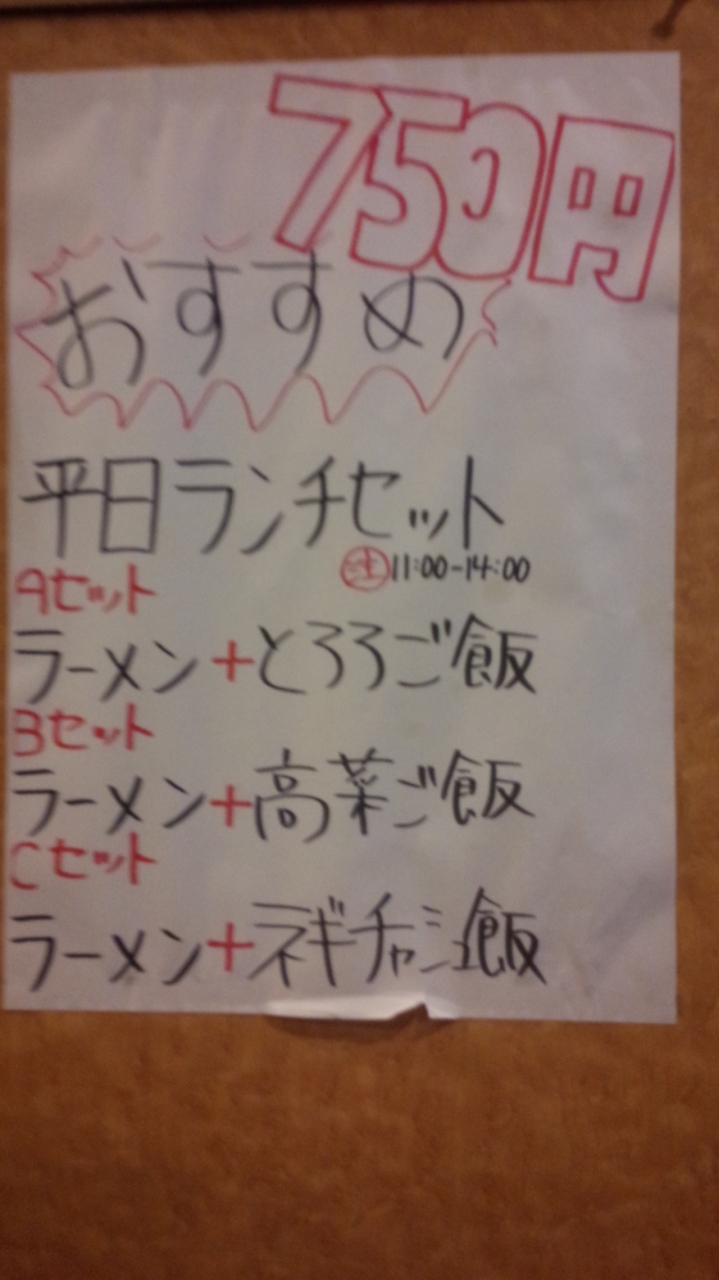 750円
おすすめ
平日ランチセット
注11:00-14:00
Aセット
ラーメン+とろろご飯
Bセット
ラーメン+高菜ご飯
Cセット
ラーメン+ネギチャーシュー飯